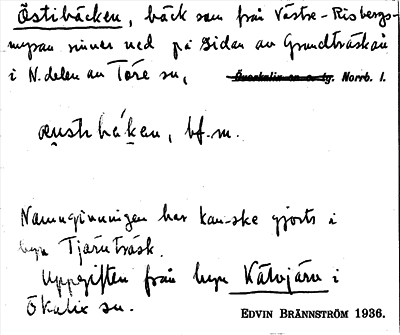 Östibäcken, bäck som från Västre-Risbergs-
myran rinner ned på sidan av Grundträskån
i N.delen av Töre sn, Överkalix sn o. tg. Norrb. l.
æustibäken, bf. m.
Namngivningen har kan-ske gjorts i
byn Tjärnträsk.
Uppgiften från byn Kätvjärv i
Ökalix sn. EDVIN BRÄNNSTRÖM 1936.